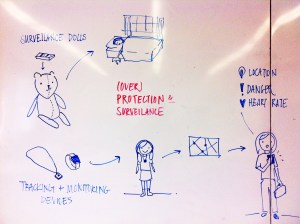 SURVEILLANCE DOLLS
(OVER)
PROTECTION &
SURVEILLANCE
LOCATION
! DANGER
HEART RATE
TRACKING + MONITORING
DEVICES